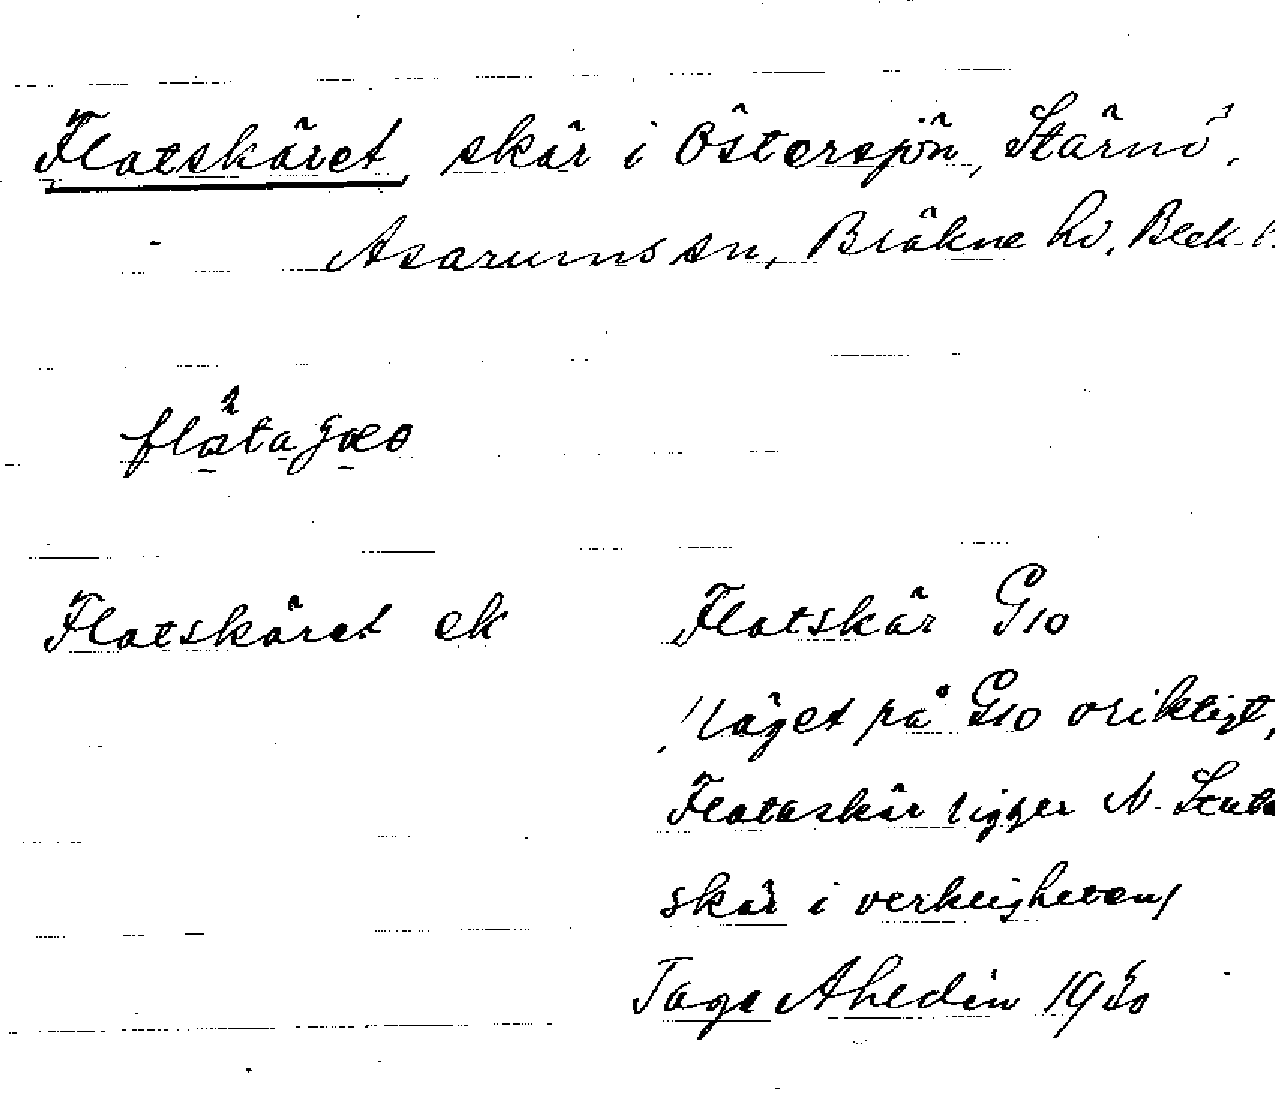 Flatskäret, skär i Östersjön, Stärnö,
Asarums sn, Bräkne hd, Blek. l.
Flatskäret ek Flatskär G10
/läget på G10 oriktigt,
Flataskär ligger N. Stuta
skär i verkligheten/
Tage Ahedin 1930